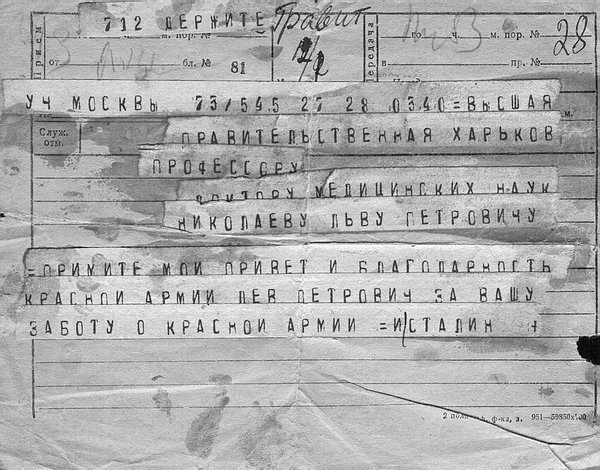 712 ДЕРЖИТЕ Правит
Прием
ч. м. пор. №
от бл. № 81
Передача
го ч. м. пор. №
пр. № 28
УЧ МОСКВЫ 73/545 27 28 0340=ВЫСШАЯ
Служ. отм.
ПРАВИТЕЛЬСТВЕННАЯ ХАРЬКОВ
ПРОФЕССОРУ
ДОКТОРУ МЕДИЦИНСКИХ НАУК
НИКОЛАЕВУ ЛЬВУ ПЕТРОВИЧУ
=ПРИМИТЕ МОЙ ПРИВЕТ И БЛАГОДАРНОСТЬ
КРАСНОЙ АРМИИ ЛЕВ ПЕТРОВИЧ ЗА ВАШУ
ЗАБОТУ О КРАСНОЙ АРМИИ =И/СТАЛИН +
ф-ка, з. 951—59350